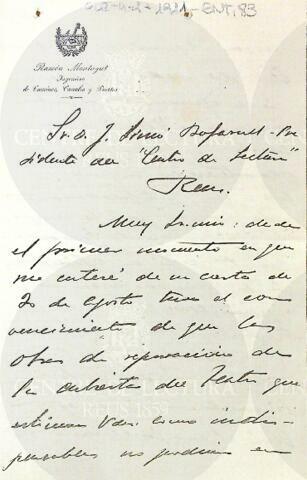 1921-ENT.83
Ramón Montagut
Ingeniero
de Caminos, Canales y Puertos
Sr. D. J. Simó Bofarull - Pre
sidente del "Centro de Lectura"
Reus.
Muy Sr. mio: desde
el primer momento en que
me enteré de su carta de
20 de agosto tuve el con
vencimiento de que las
obras de reparación de
la cubierta del Teatro que
estiman Vdes. como indis-
pensables no podrian en